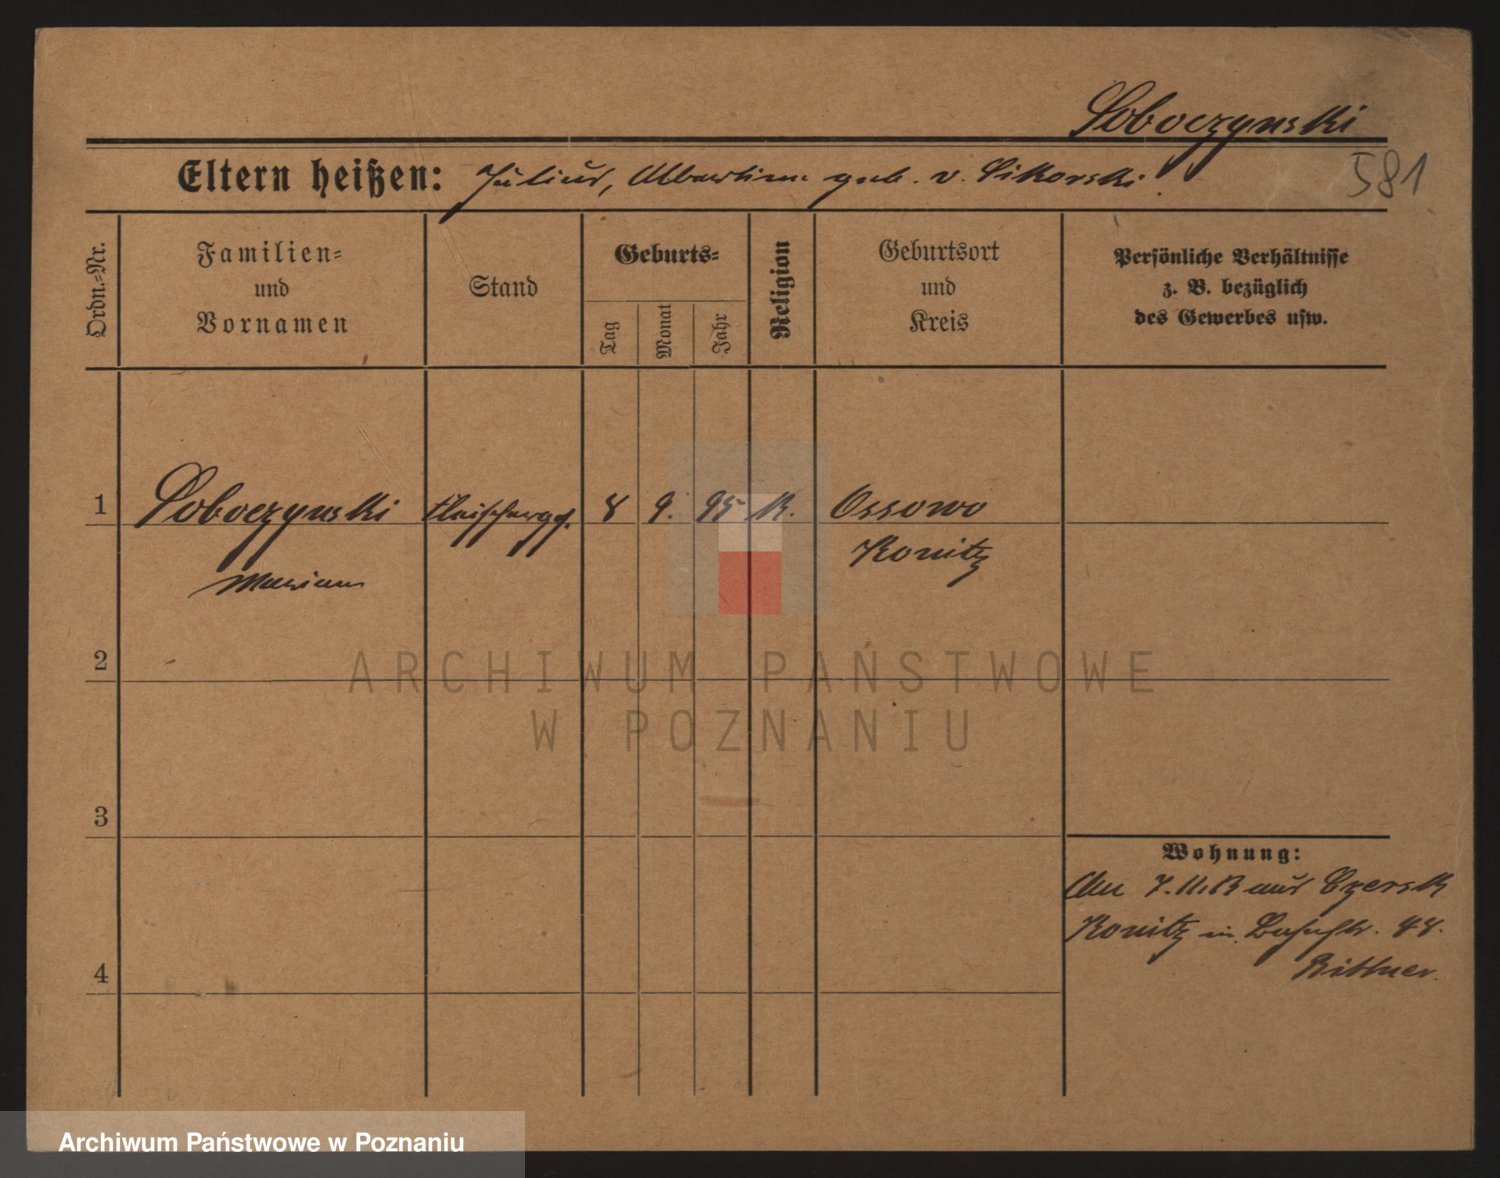 Soboczynski
Eltern heißen: Julius, Albertine geb. v. Sikorski.
581
Ordn.-Nr.
Familien- und Vornamen
Stand
Geburts-
Tag
Monat
Jahr
Religion
Geburtsort und Kreis
Persönliche Verhältnisse
z. B. bezüglich
des Gewerbes usw.
1 Soboczynski Fleischerges. 8 9. 95 K. Ossowo
Marian Konitz
2
ARCHIWUM PAŃSTWOWE
W POZNANIU
3
Wohnung:
aus Czersk
Konitz in 48.
4
Bittner.
Archiwum Państwowe w Poznaniu